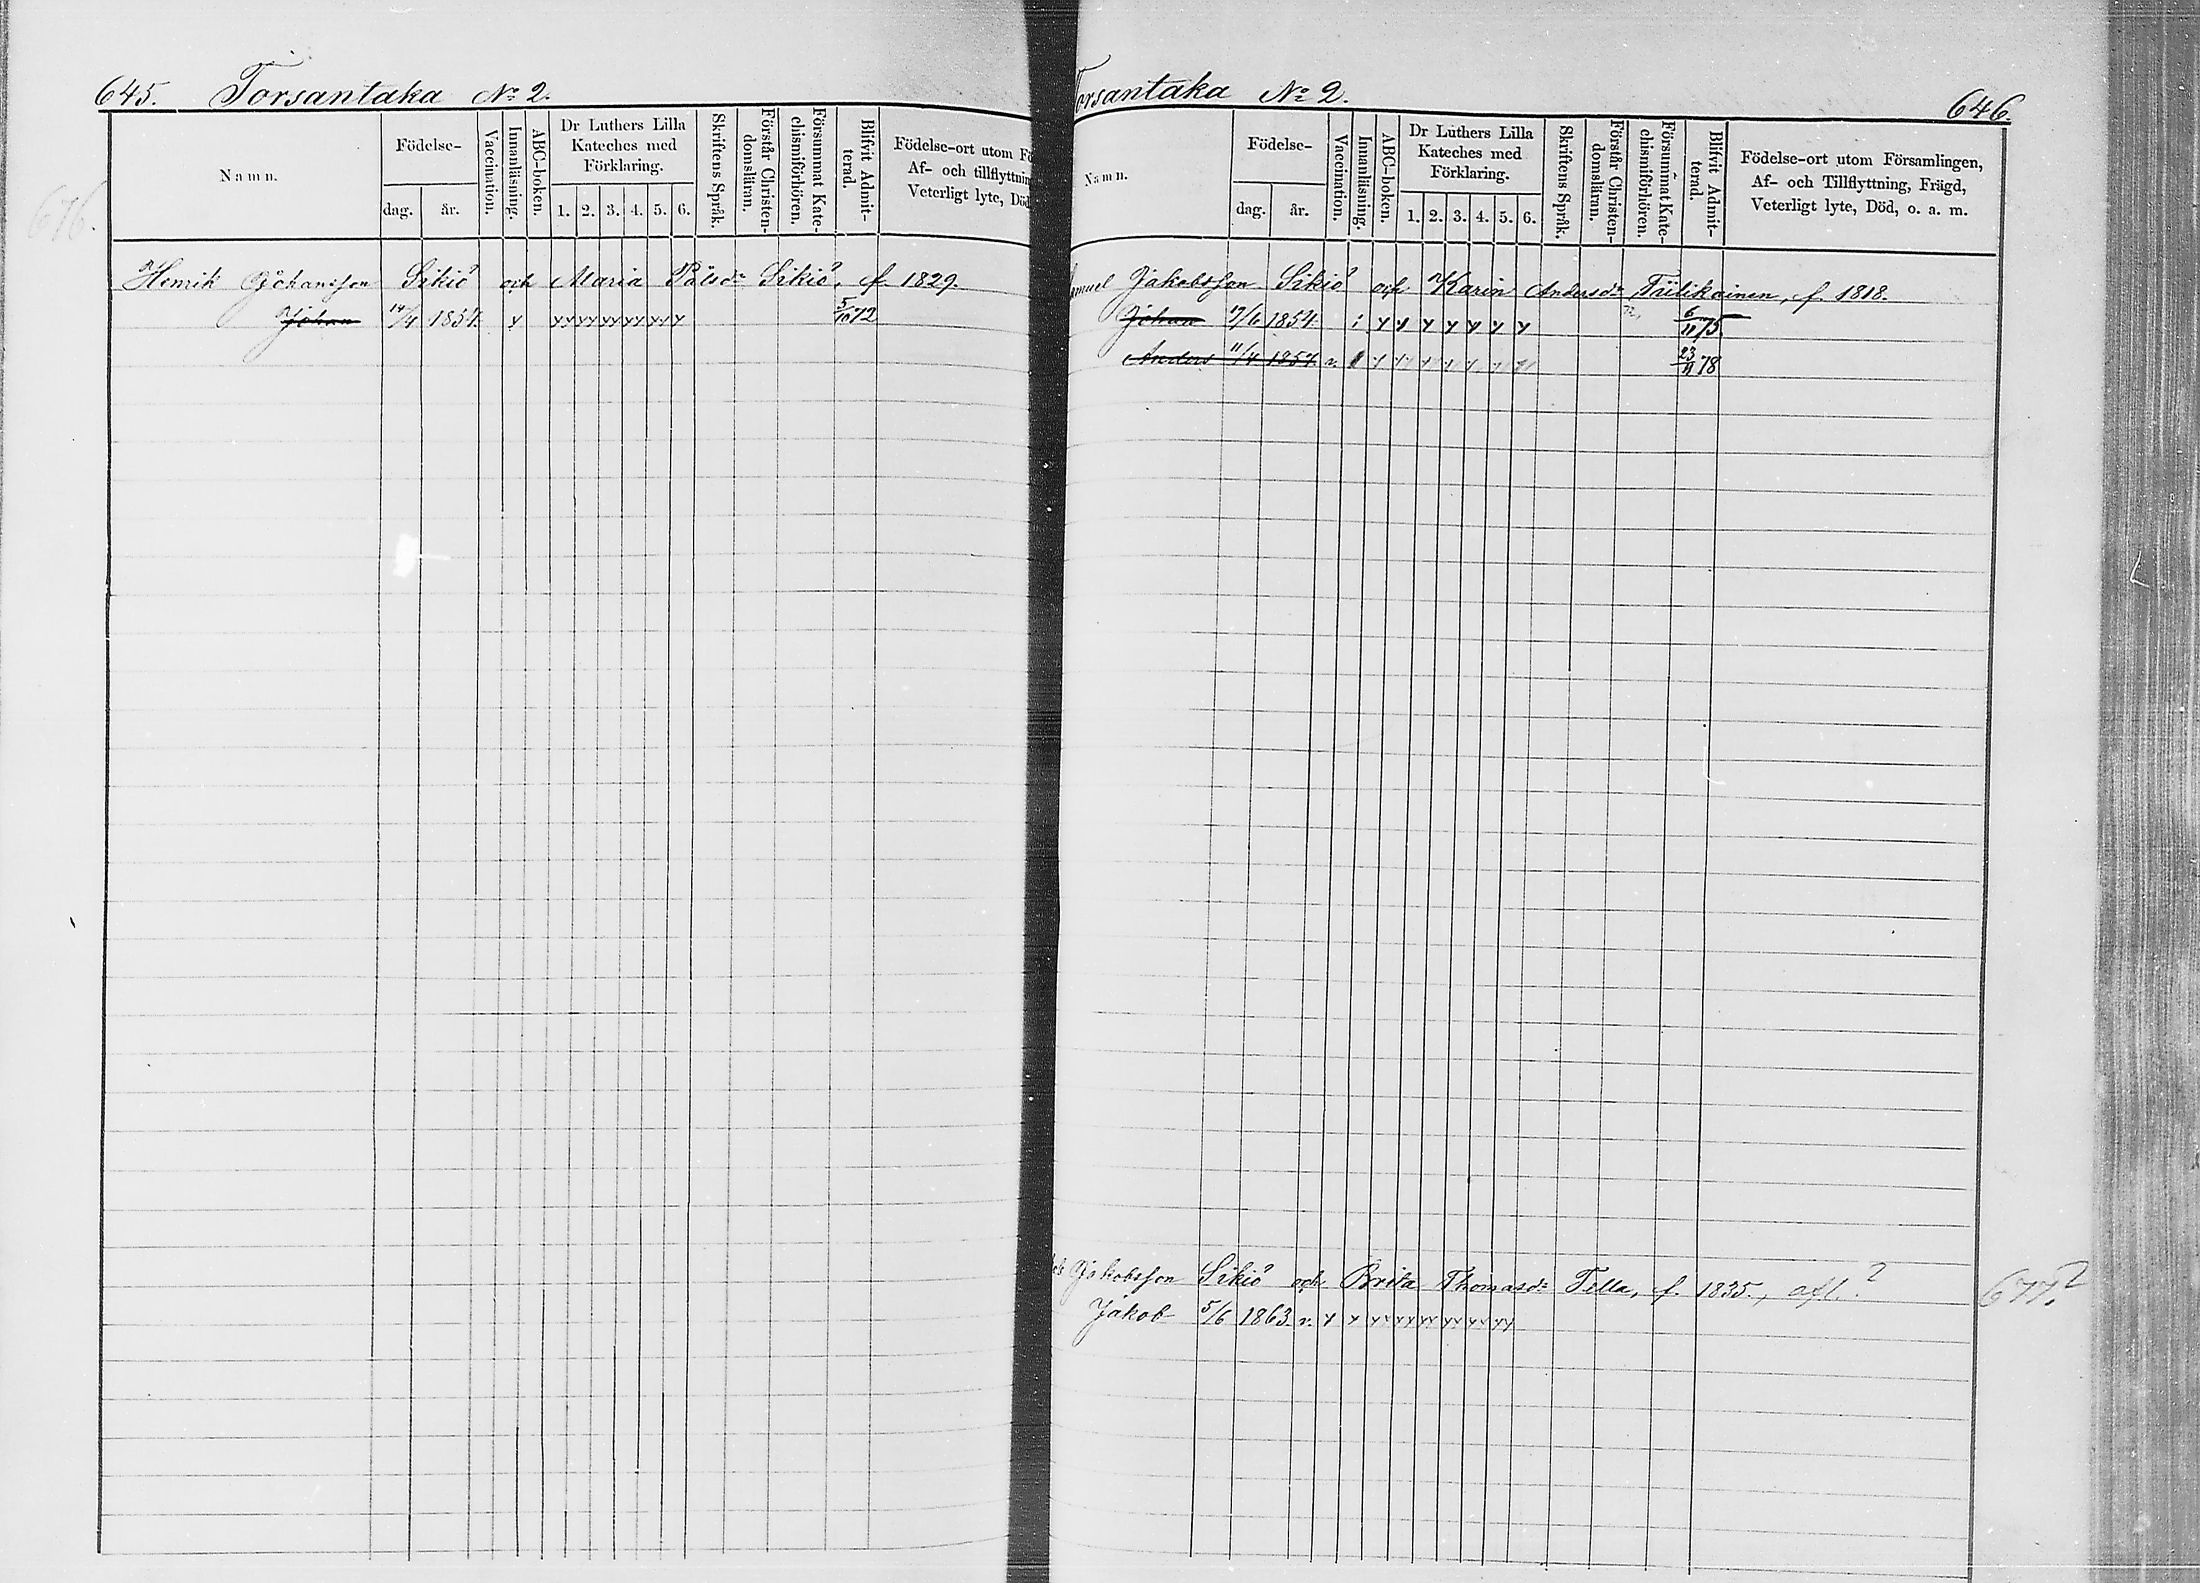 645. Torsantaka No 2.
Namn.
Födelse-
dag. år.
Vaccination.
Innanläsning.
ABC-boken.
Dr Luthers Lilla
Kateches med
Förklaring.
1. 2. 3. 4. 5. 6.
Skriftens Språk.
Förstår Christen-
domsläran.
Försummat Kate-
chismiförhören.
Blifvit Admit-
terad.
Födelse-ort utom
Af- och tillflyttnin
Veterligt lyte, Död
676.
Henrik Johansson Sikiö och Maria Pålsdr Sikiö, f. 1829.
Johan 14/4 1857. y yy yy yy yy yy y 5/10 72
Torsantaka No 2. 646.
Namn.
Födelse-
dag. år.
Vaccination.
Innanläsning.
ABC-boken.
Dr Luthers Lilla
Kateches med
Förklaring.
1. 2. 3. 4. 5. 6.
Skriftens Språk.
Förstår Christen-
domsläran.
Försummat Kate-
chismiförhören.
Blifvit Admit-
terad.
Födelse-ort utom Församlingen,
Af- och Tillflyttning, Frägd,
Veterligt lyte, Död, o. a. m.
muel Jakobsson Sikiö och Karin Andersdr Tiilikainen, f. 1818.
Johan 17/6 1854 y y y y y y y 6/11 75
Anders 11/4 1857. v. y yy yy yy y yy yy 23/11 78
Jakobsson Sikiö och Brita Thomasdr Tella, f. 1835., afl.?
677.?
Jakob 5/6 1863. v. y y yy yy yy yy yy yy